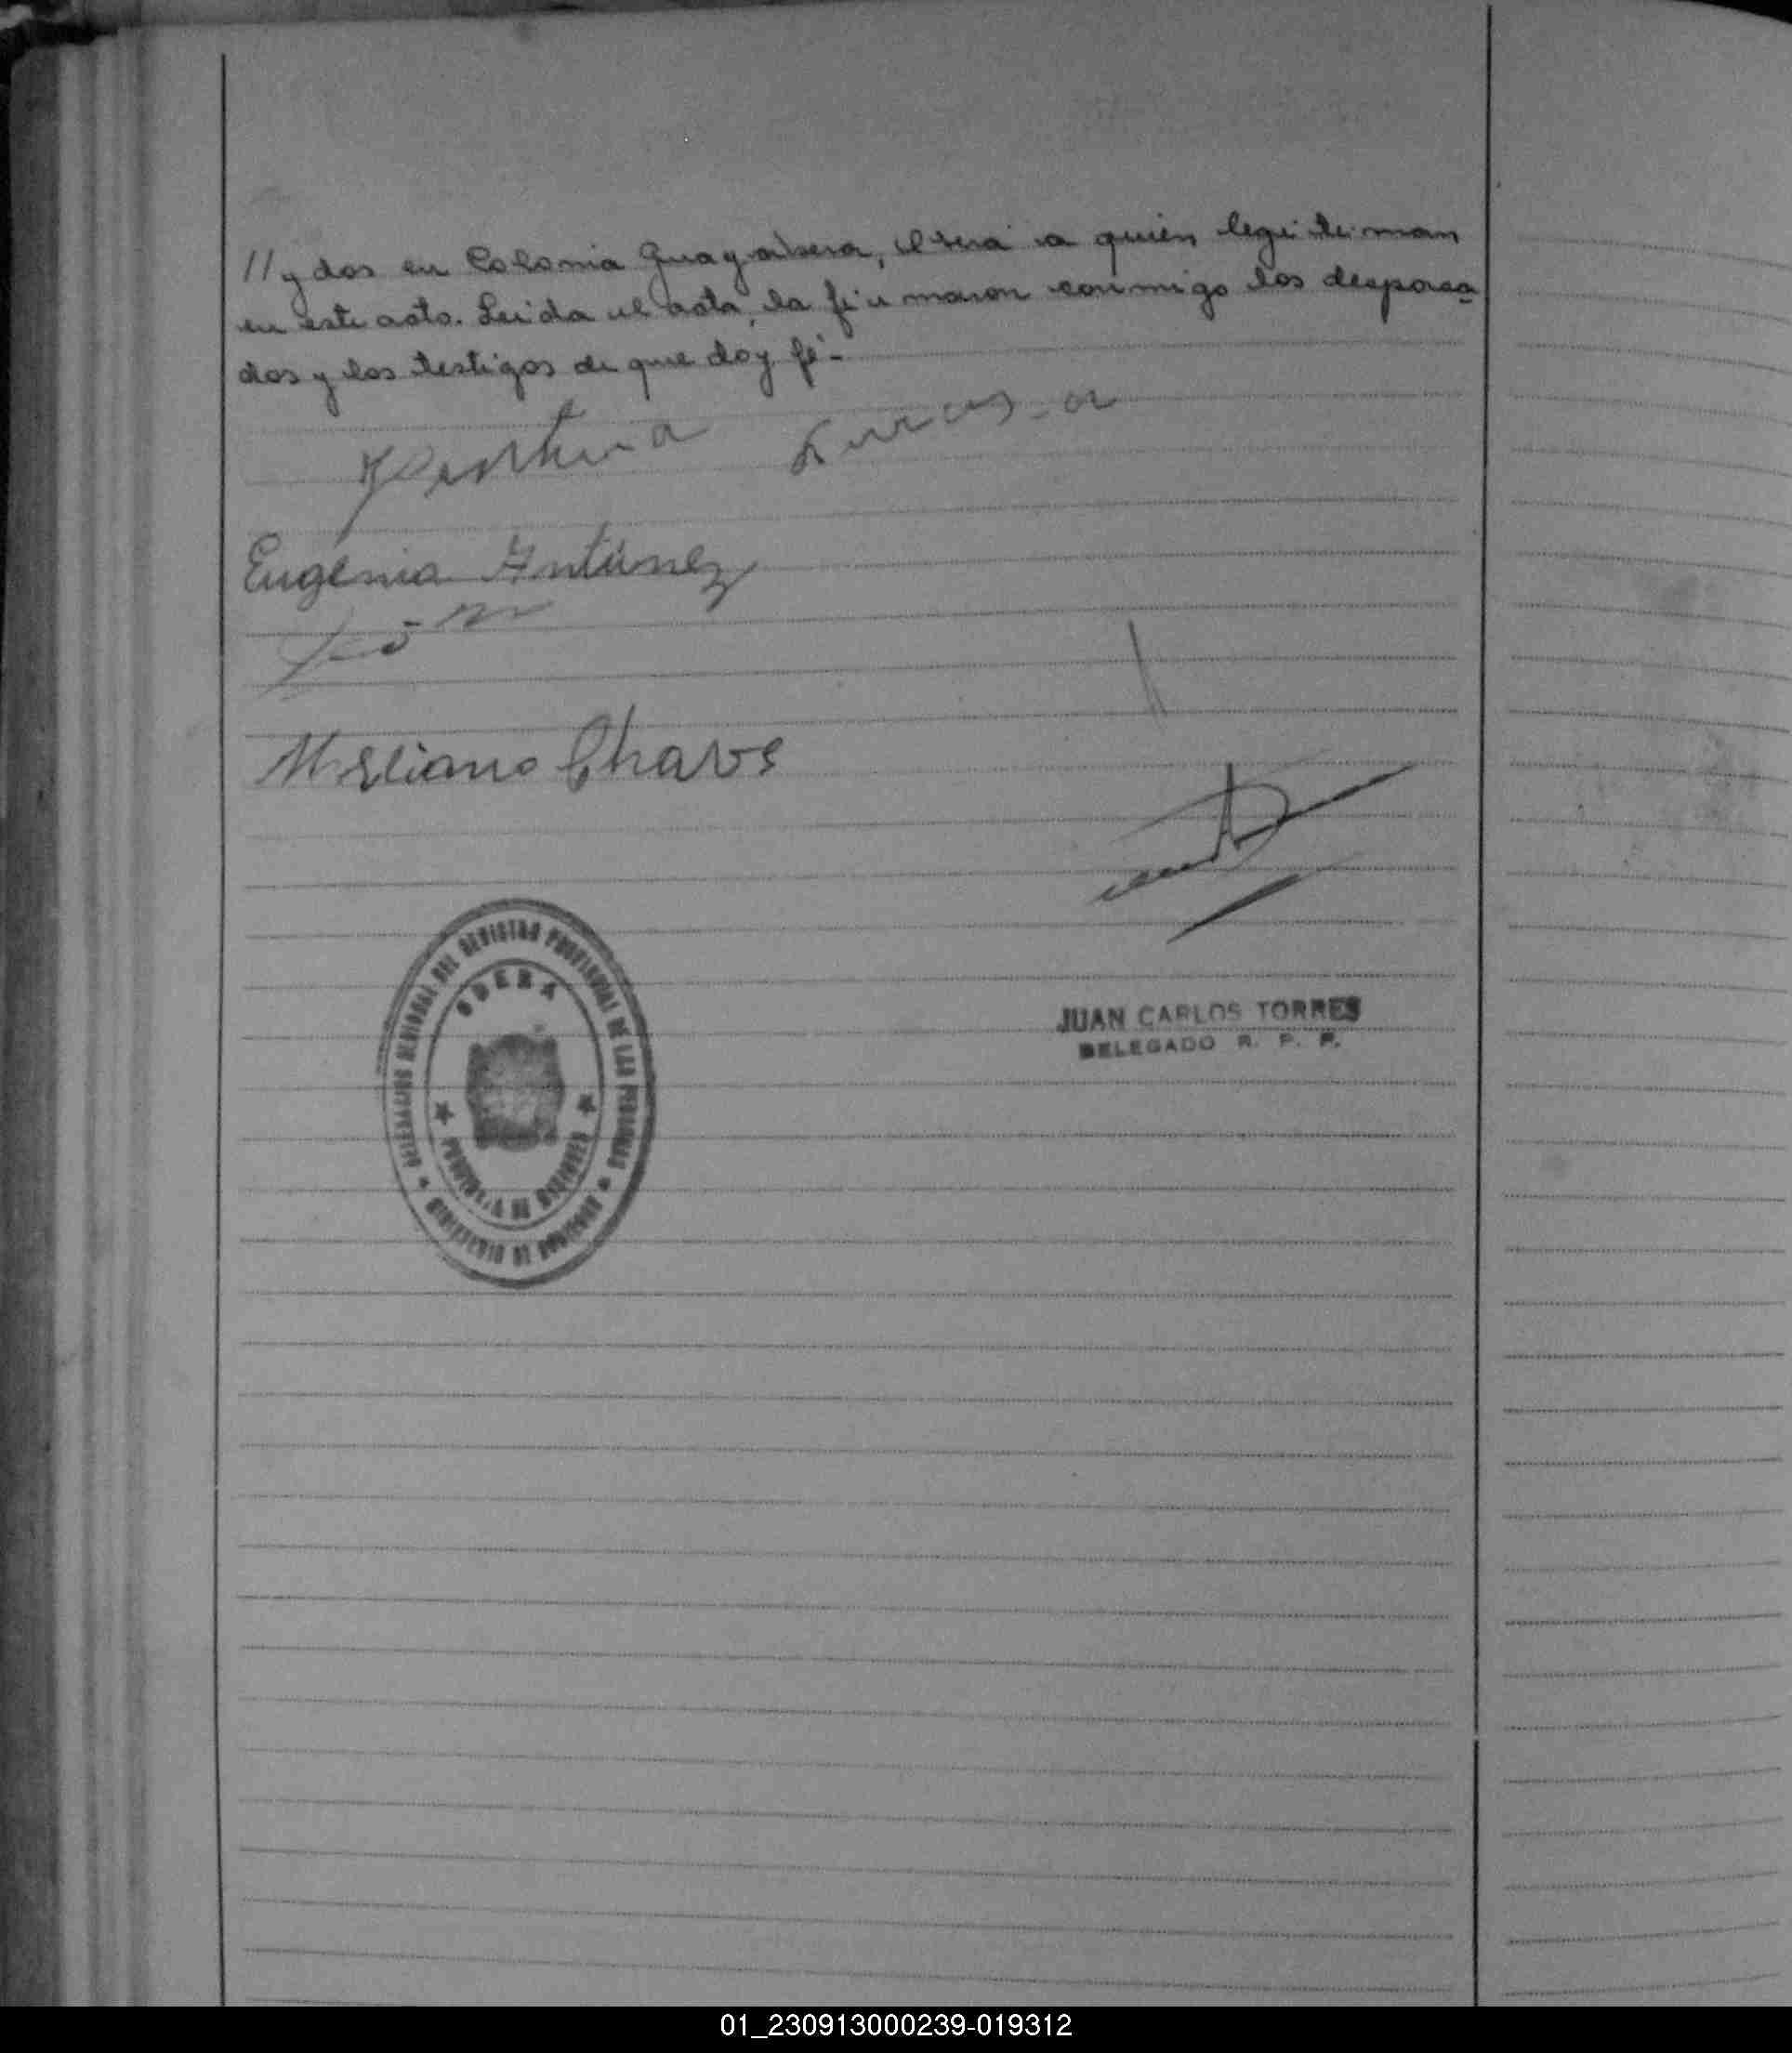 //y dos en Colonia Guayabera, Oberá a quien legitiman
en este acto. Leida el acta, la firmaron conmigo los desposa
dos y los testigos de que doy fé.-
Eugenia Antúnez
Chave
DELEGACION REGIONAL DEL REGISTRO PROVINCIAL DE LAS PERSONAS
OBERA
PROVINCIA DE MISIONES
MINISTERIO DE GOBIERNO
JUAN CARLOS TORRES
DELEGADO R. P. P.
01_230913000239-019312